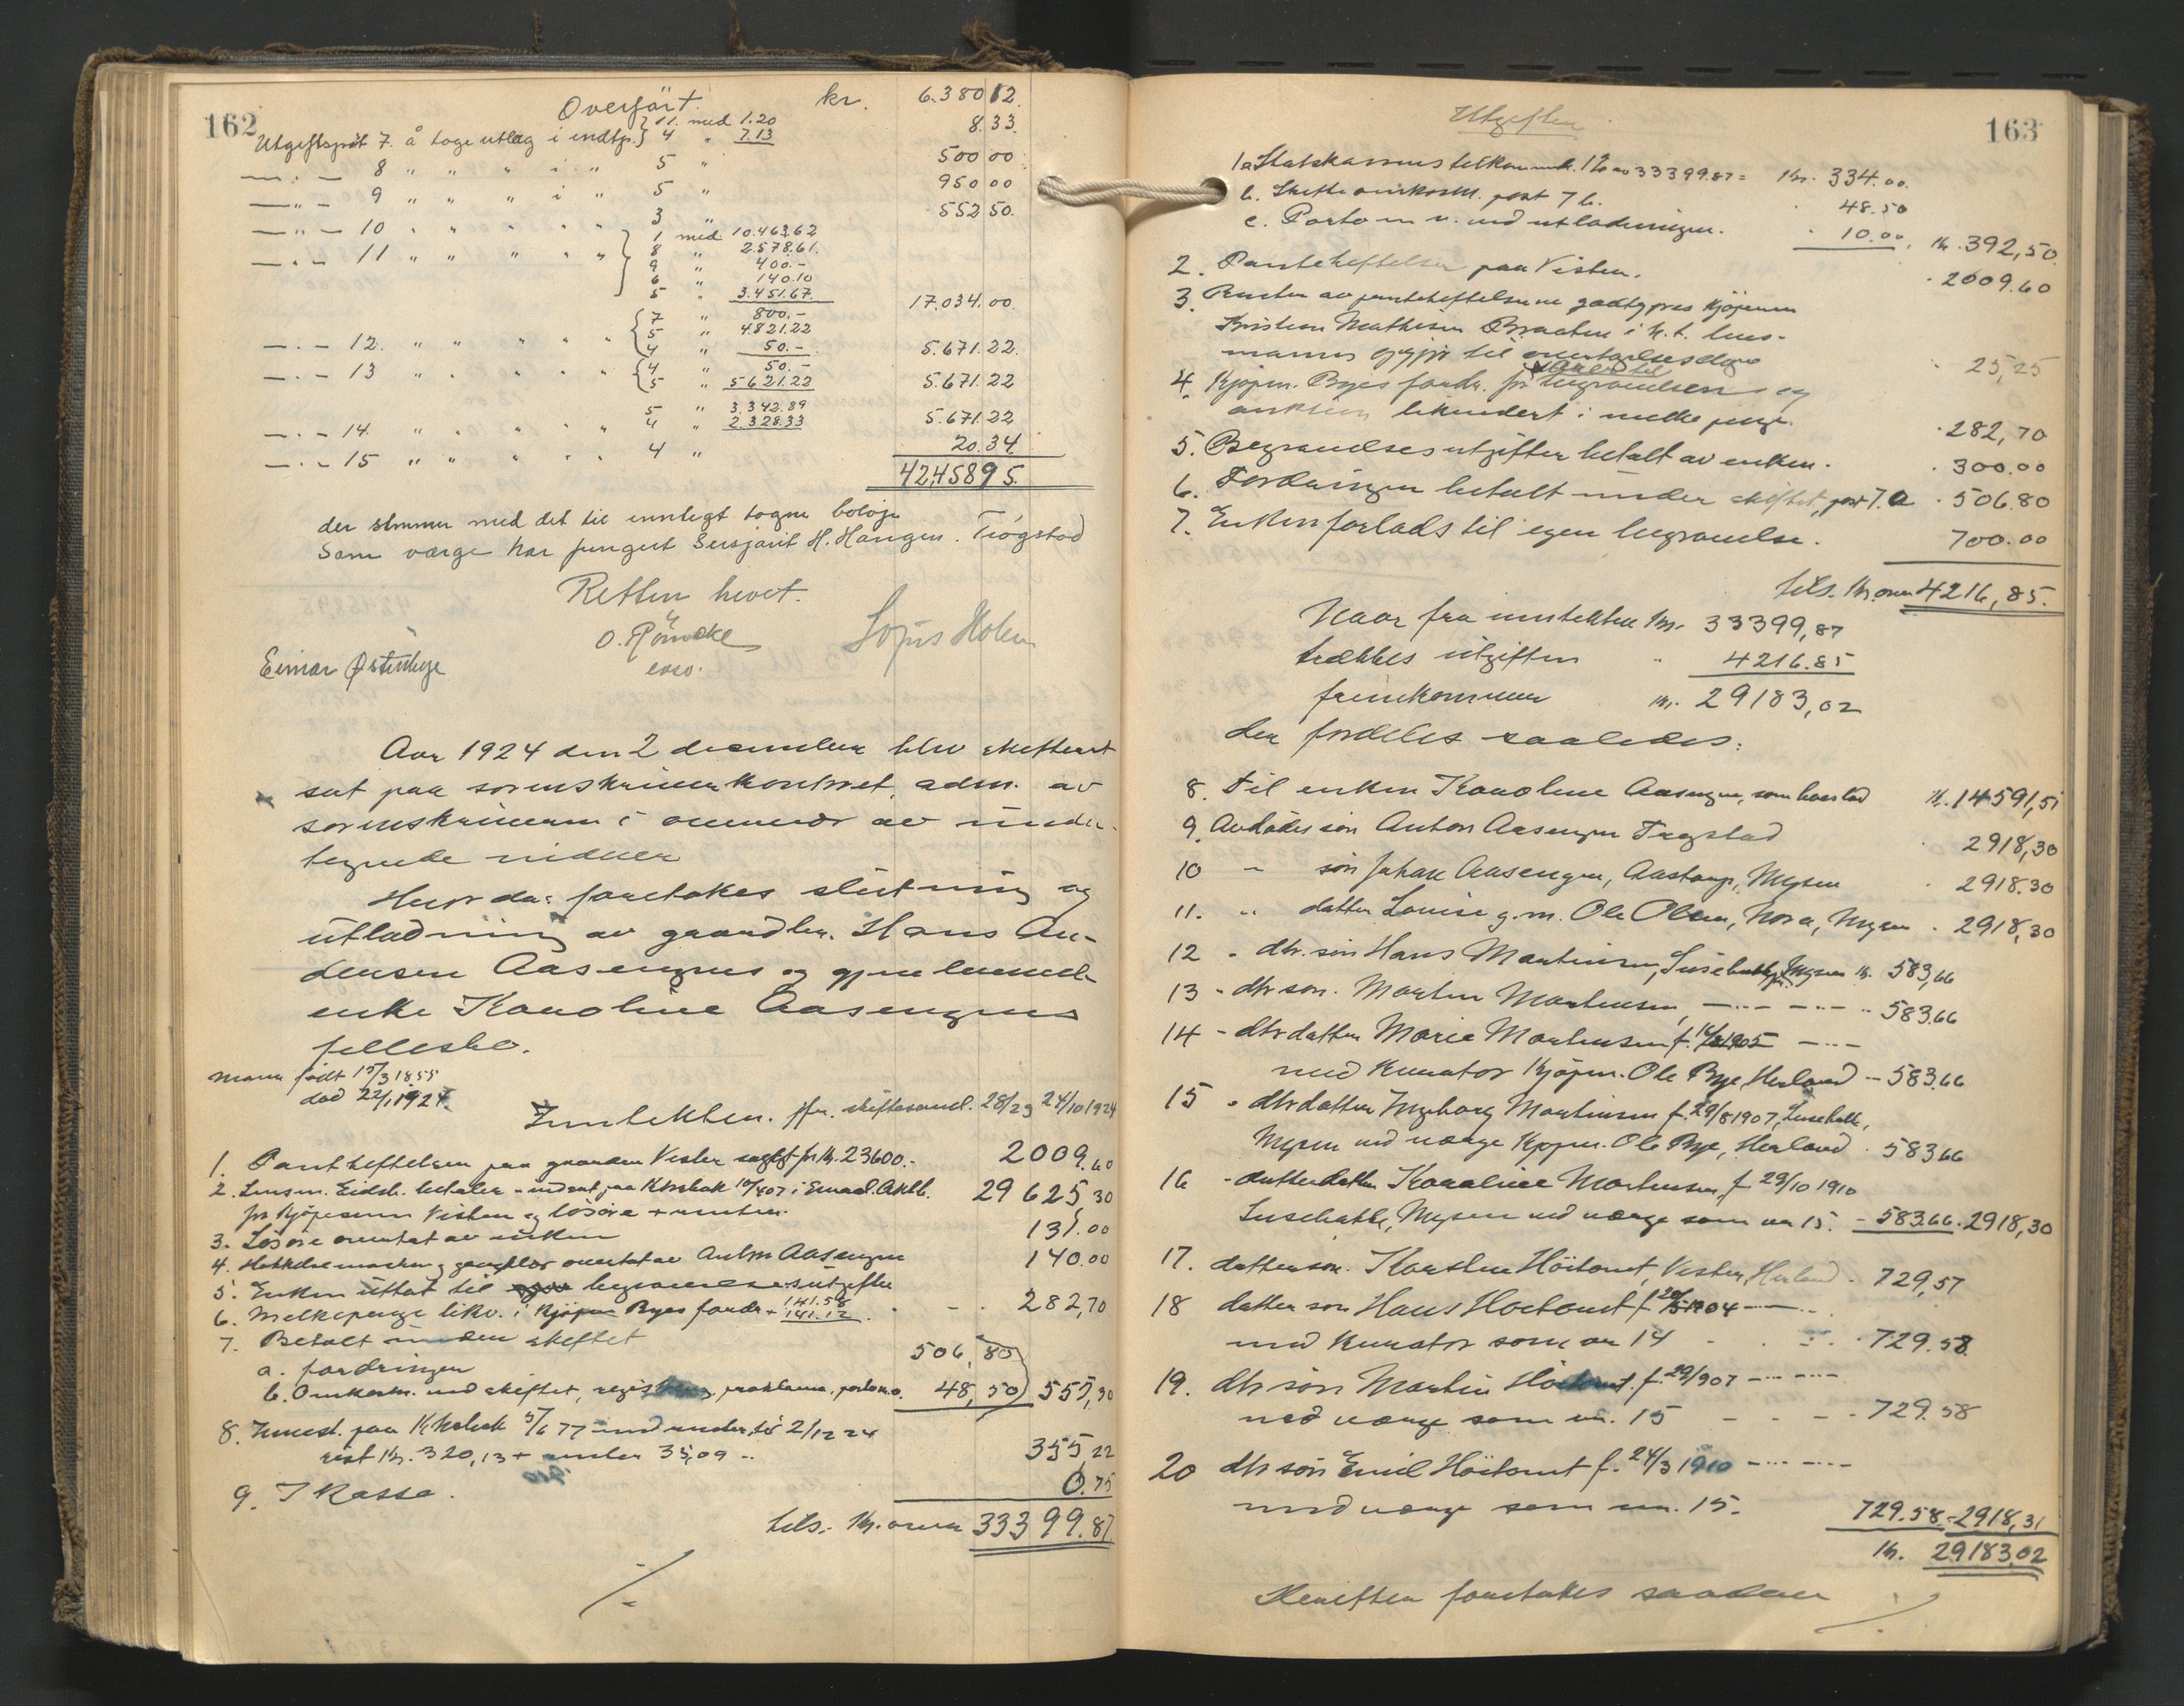 162
Overført. kr. 6.380 12.
Utgiftspost 7. å tage utlæg i indtp. } 11. med 1.20
4 " 7.13 8.33.
— . — 8 " " " i " 5 " 500 00
— " — 9 " " " i " 5 " 950 00
— " — 10 . " " " " 3 " 552 50.
— . — 11 " " " " " } 1 med 10.463.62
8 " 2.578.61.
9 " 400.-
6 " 140.10
5 " 3.451.67. 17.034.00.
— . — 12. " " " " " { 7 " 800.-
5 " 4.821.22
4 " 50.- 5.671.22.
— . — 13 " . " . " { 4 " 50.-
5 " 5621.22 5.671.22
— . — 14. " . " " " 5 " 3.342.89
4 " 2.328.33 5.671.22
— . — 15 " " " . " 4 " 20.34.
42.458 95.
der stemmer med det til enntegt togne beløp
Som værge har fungert Sersjant H. Haugen. Trøgstad
Retten hevet.
O. Rømcke
Einar Østenbye
Sofus Holen
Aar 1924 den 2 december blev skifteret
sat paa sorenskriverkontoret, adm. av
sorenskriveren i overvær av under-
tegnede vidner
Hvor da: foretokes slutning og
utlodning av gaardbr. Hans An-
densen Aasengens og gjenlevende
enke Karoline Aasengens
fellesbo.
Mann født 15/3 1855
død 22/1 1924.
Inntekten. jfr. skiftesaml. 28/2 og 24/10 1924
1. Pantheftelsen paa gaarden Vister solgt for kr. 23600.- 2009.60
2. Lensm. Eidsb. betaler - indsat paa K.bok i 29 625 30
for kjøpesum Visten og løsøre + renter.
3. Løsøre overtat av enken 131.00
4. Hakkelsemaskin og overtat av Anton Aasengen 140.00
5. Enken uttat til begravelsesutgifter
6. Melkepenge likv. i Kjøpm Byes fordr. 141.58 + 141.12 . - . 282,70
7. Betalt under skiftet
a. fordringer 506,80
b. Omkostn. ved skiftet, registrering, proklama, porto m.v. 48,50 555,30
8. Innest. paa K.bok 77 med renter til 2/12 24
rest kr. 320,13 + renter 35,09 .. 355,22
9. I kassa. 0.75
tils. kr. over 33399.87
163
Utgiften
1a. Statskassens tilkommende 1% av 33399.87 = kr. 334.00.
b. Skifteomkostn. post 7 b. . 48.50
c. Porto m v. ved utlodningen. . 10.00. kr. 392,50.
2. Panteheftelser paa Visten. . 2009.60
3. Renter av panteheftelserne godtgjøres kjøperen
Kristian Mathisen Braaten i h. t. lens-
mannens opgjør til overtagelsesdagen . 25,25
4. Kjøpm. Byes fordr. for varer til begravelsen og
auktion likvidert i melkepenge. . 282,70
5. Begravelsesutgifter betalt av enken. . 300.00
6. Fordringer betalt under skiftet, post 7.a . 506.80
7. Enkens forlods til egen begravelse. 700.00
tils. kr. over 4216,85.
Naar fra inntekten kr. 33399,87
trækkes utgiften " 4216.85
fremkommer kr. 29183,02
der fordeles saaledes:
8. til enken Karoline Aasengen, som boeslod kr. 14591,51
9. Avdødes søn Anton Aasengen Trøgstad . 2918,30
10 " søn Johan Aasengen, Aastorp, Mysen . 2918.30
11. " datter Louise g. m. Ole Olsen, Nora, Mysen . 2918,30
12 " dtr. søn Hans Martinsen, Susebakke, Mysen kr. 583,66
13 - dtr søn. Martin Martensen, —..— —..— .. 583.66
14 - dtr datter Marie Martensen f. 1905 —..—
med kurator Kjøpm. Ole Bye, Herland - 583.66
15 " dtr datter Ingborg Martinsen f. 29/8 1907, Susebakke,
Mysen med værge Kjøpm. Ole Bye, Herland . 583.66
16 - datterdatter Karoline Martensen f. 29/10 1910
Susebakke, Mysen med værge som nr 15. - 583.66 . 2918,30
17. dattersøn. Karsten Höitomt, Vister, Herland . 729,57
18 datter søn Hans Hoitomt f. 1904 —..—
med kurator som nr 14 - . . . 729.58.
19. dtr søn Martin Höitomt f. 1907 —..— —..—
med værge som nr. 15 - . - . 729.58
20 dtr søn Emil Höitomt f. 24/3 1910 —..— —..—
med værge som nr. 15. 729.58 - 2918,31
kr. 29183,02
Herefter foretokes saadan